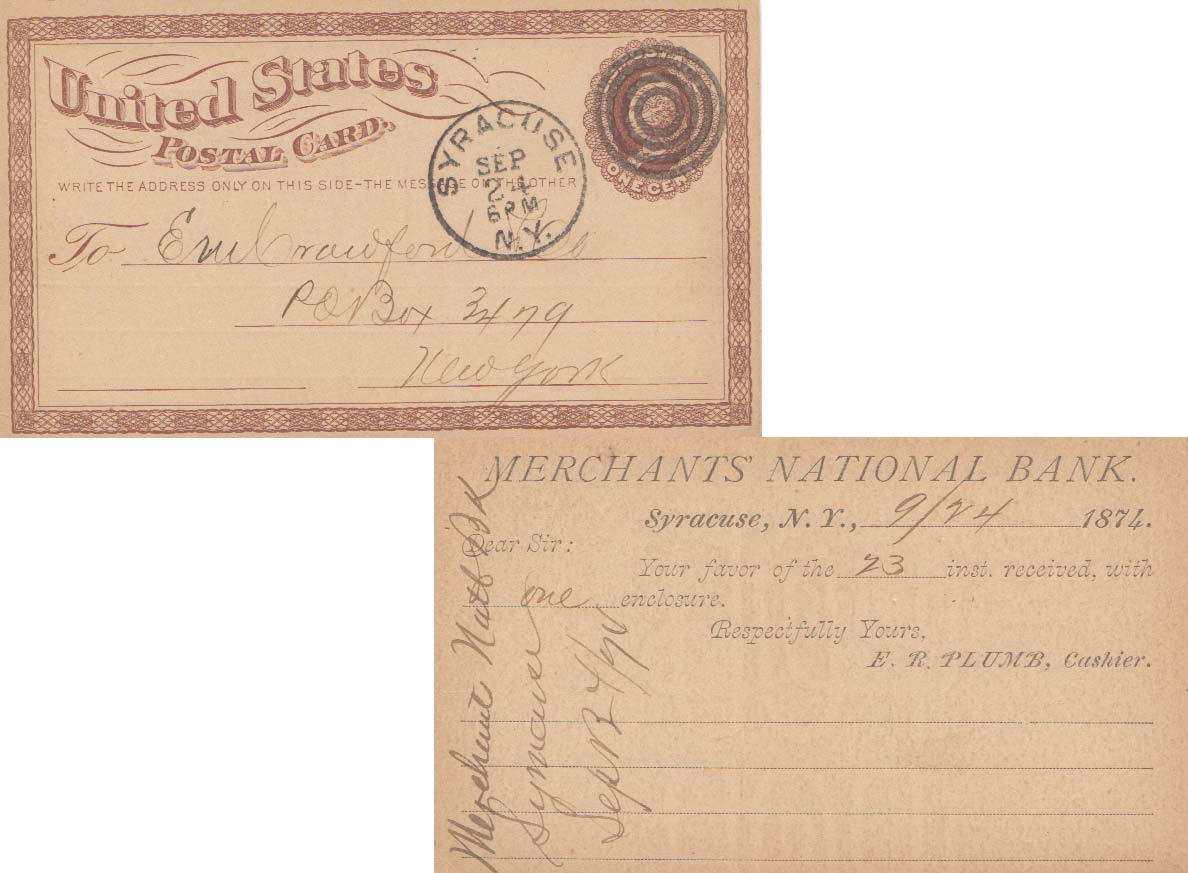 United States
POSTAL CARD.
WRITE THE ADDRESS ONLY ON THIS SIDE-THE MESSAGE ON THE OTHER
SYRACUSE
SEP
24
6PM
N.Y.
ONE CENT
To Em Crawford & Co
PO Box 3479
New York
MERCHANTS' NATIONAL BANK.
Syracuse, N. Y., 9/24 1874.
Dear Sir:
Your favor of the 23 inst. received, with
one enclosure.
Respectfully Yours,
E. R. PLUMB, Cashier.
Merchant Natl Bk
Syracuse
Sep